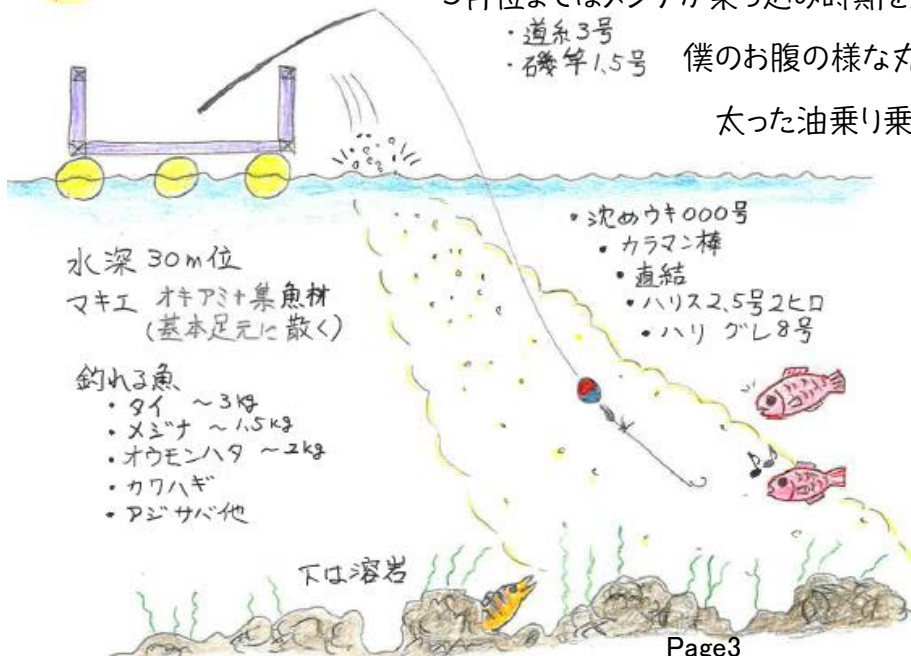 5月位まではメジナが乗っ込み時期を
・道糸3号
・磯竿1.5号
僕のお腹の様な丸
太った油乗り乗
・沈めウキ000号
・カラマン棒
・直結
・ハリス2.5号2ヒロ
・ハリ グレ8号
水深30m位
マキエ オキアミ+集魚材
(基本足元に散く)
釣れる魚
・タイ ~3kg
・メジナ ~1.5kg
・オウモンハタ ~2kg
・カワハギ
・アジサバ他
下は溶岩
Page3